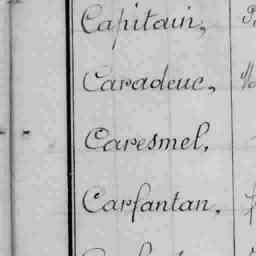 Capitain,
Caradeuc,
Caresmel,
Carfantan,